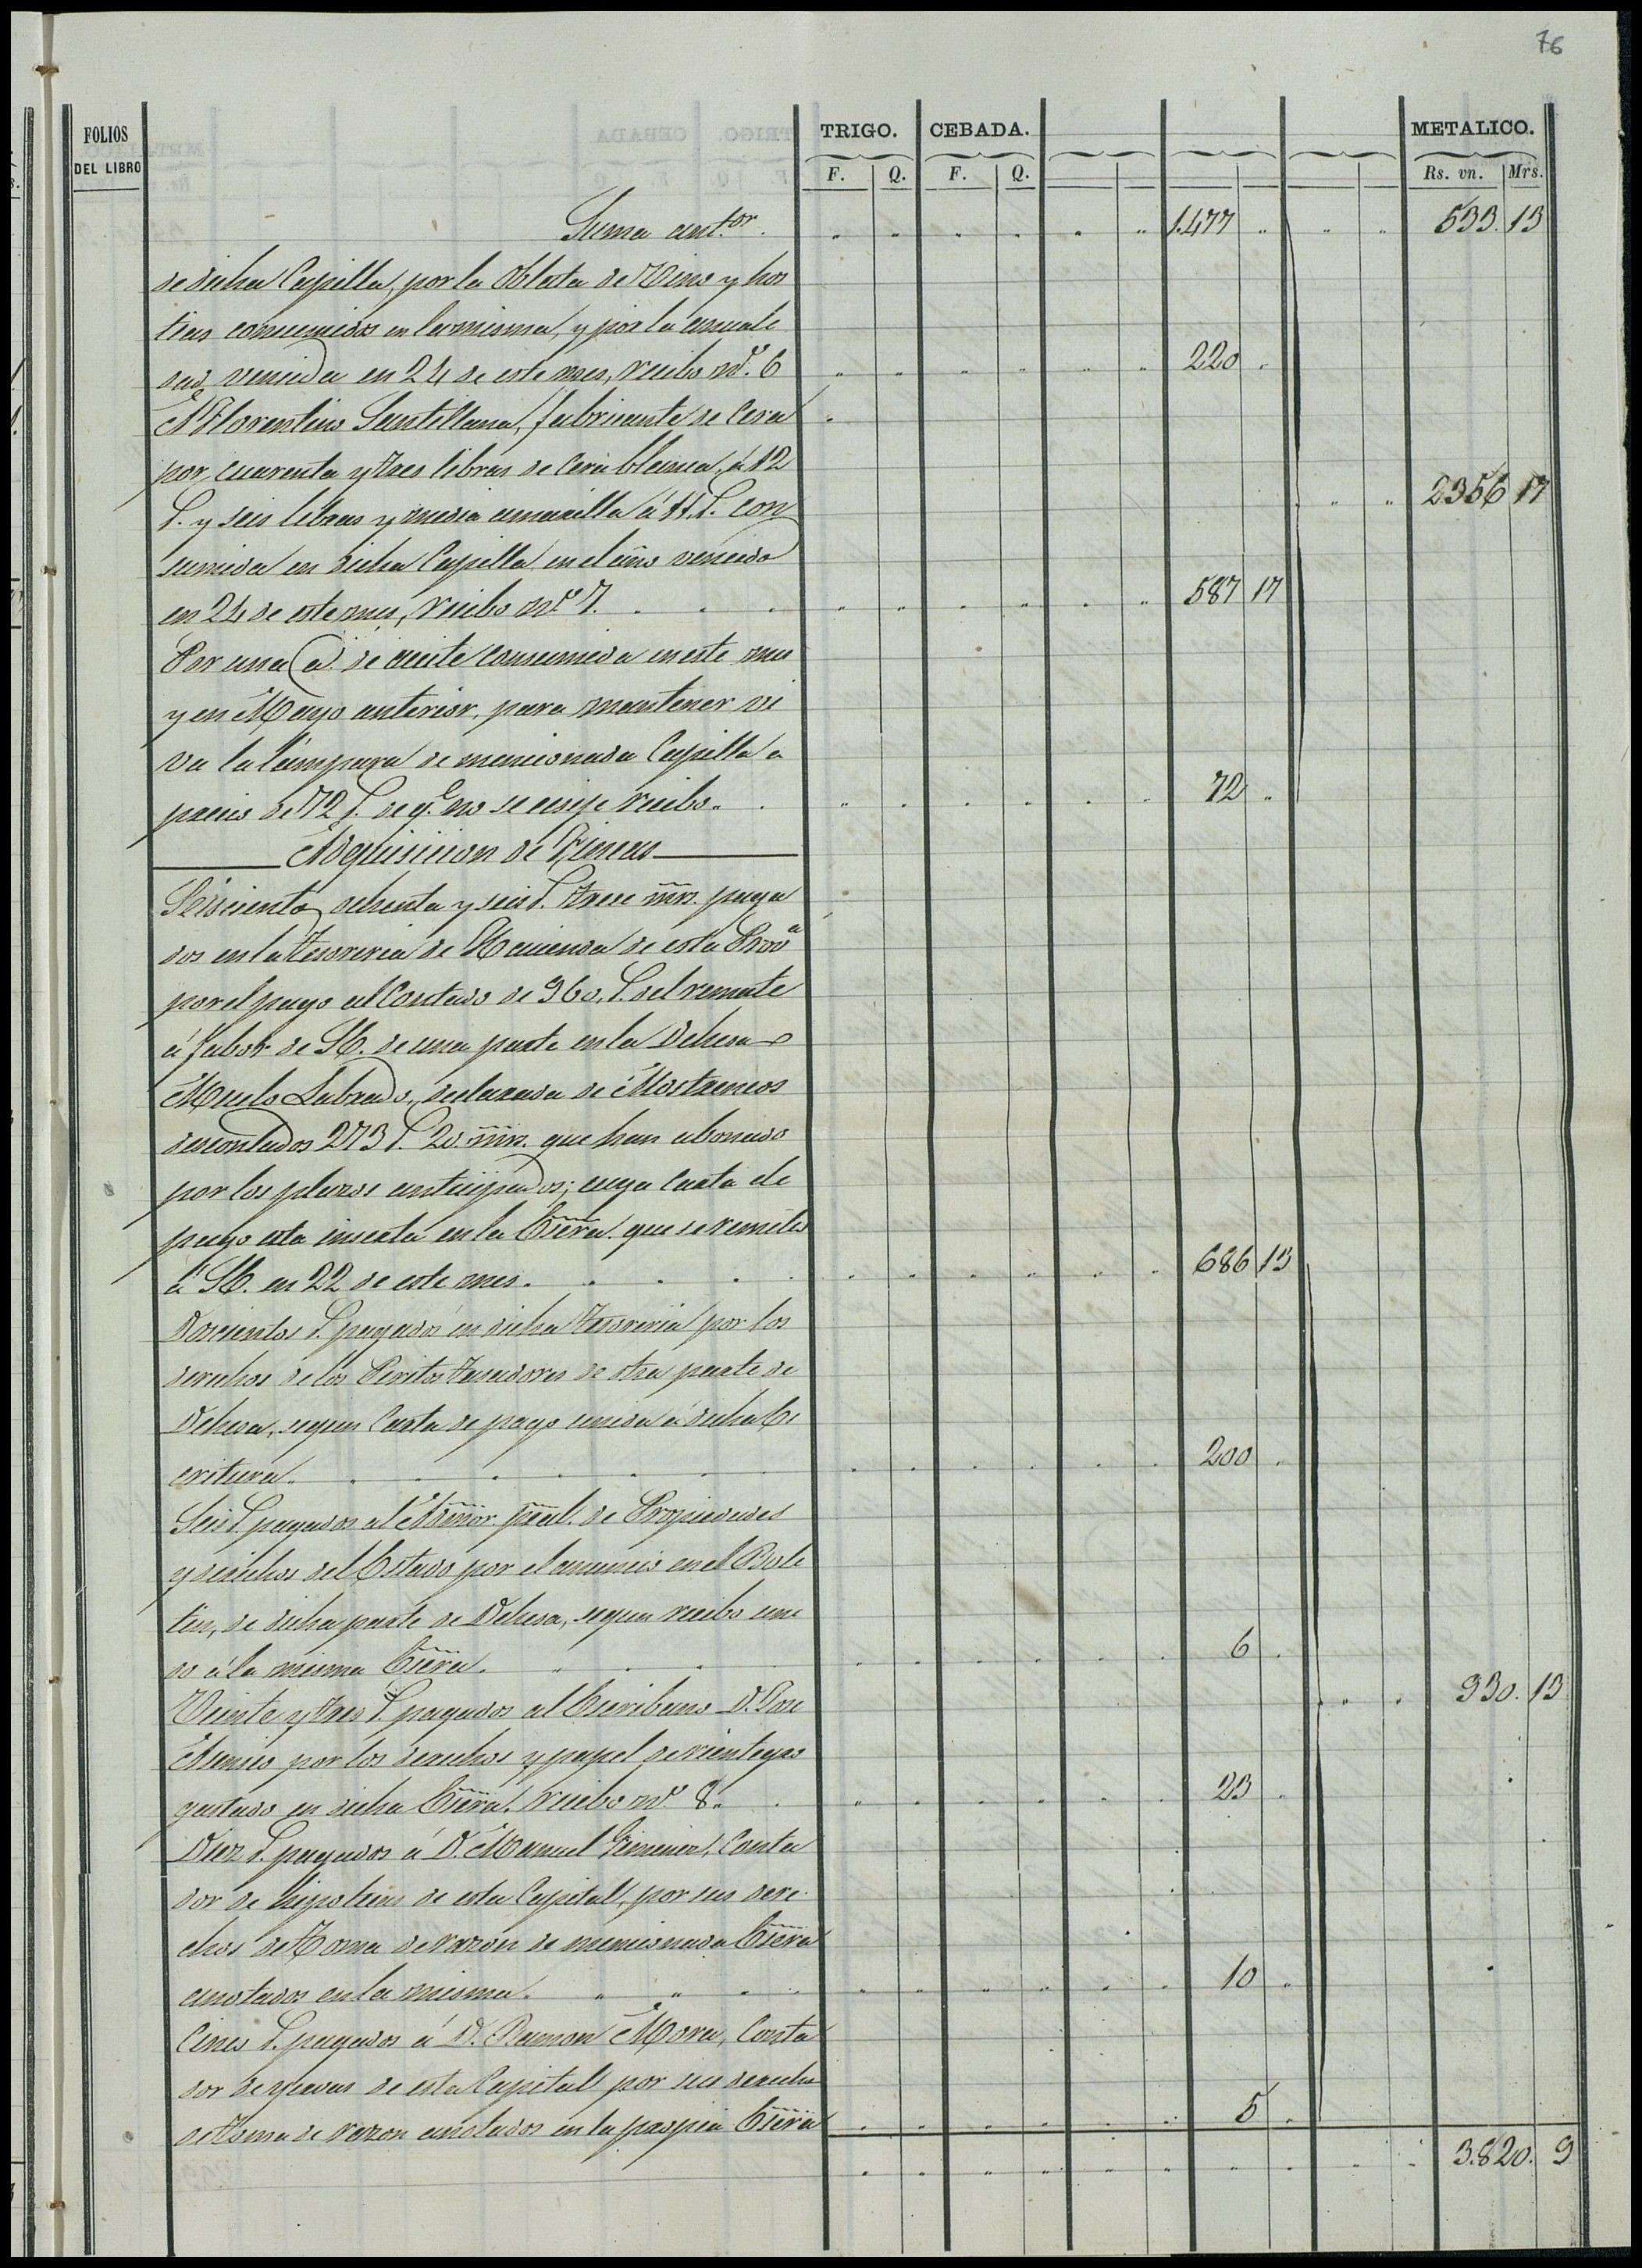 76
FOLIOS DEL LIBRO TRIGO. CEBADA. METALICO.
F. Q. F. Q. Rs. vn. Mrs.
Suma ant.or. 1.477 " 533. 13
de dicha Capilla, por la Oblata de Vino y hos
tias consumidos en la misma, y por la anuali
dad vencida en 24 de este mes, recibo nº. 6 220 "
A Florentino Santillana, fabricante de Cera
por cuarenta y tres libras de Cera blanca, á 12
r. y seis libras y media amarilla á 11 r. con 2356 17
sumida en dicha Capilla en el año vencido
en 24 de este mes, recibo nº. 7. 587 17
Por una @ de aceite consumida en este mes
y en Mayo anterior, para mantener vi
va la lámpara de mencionada Capilla a
precio de 72 r. de q.e no se exije recibo. 72 "
Adquisicion de Fincas
Seiscientos ochenta y seis r. trece mrs. paga
dos en la Tesoreria de Hacienda de esta Prov.a
por el pago al Contado de 960, r. del remate
á fabor de S.E. de una parte en la Dehesa
Labrado, declarada de Mostrencos
descontados 273 r. 20. mrs. que han abonado
por los plazos anticipados; cuya Carta de
pago esta inserta en la Escra. que se remitió
á S.E. en 22 de este mes. 686 13
Doscientos r. pagados en dicha Tesoreria por los
derechos de los Peritos tasadores de otra parte de
Dehesa, segun Carta de pago unida á dicha Es
critura. 200 "
Seis r. pagados al Admor. pral. de Propiedades
y derechos del Estado por el anuncio en el Bole
tin, de dicha parte de Dehesa, segun recibo uni
do á la misma Escra. 6 "
Veinte y tres r. pagados al Escribano D. José 930. 13
Asensio por los derechos y papel de reintegro
gastado en dicha Escra. recibo nº. 8. 23 "
Diez r. pagados á D. Manuel Gimenez, Conta
dor de hipotecas de esta Capital, por sus dere
chos de Toma de razon de mencionada Escra
anotados en la misma. 10 "
Cinco r. pagados á D. Ramon Mora, Conta
dor de de esta Capital por sus derechos
de Toma de razon anotados en la propia Escra 5 "
3.820. 9